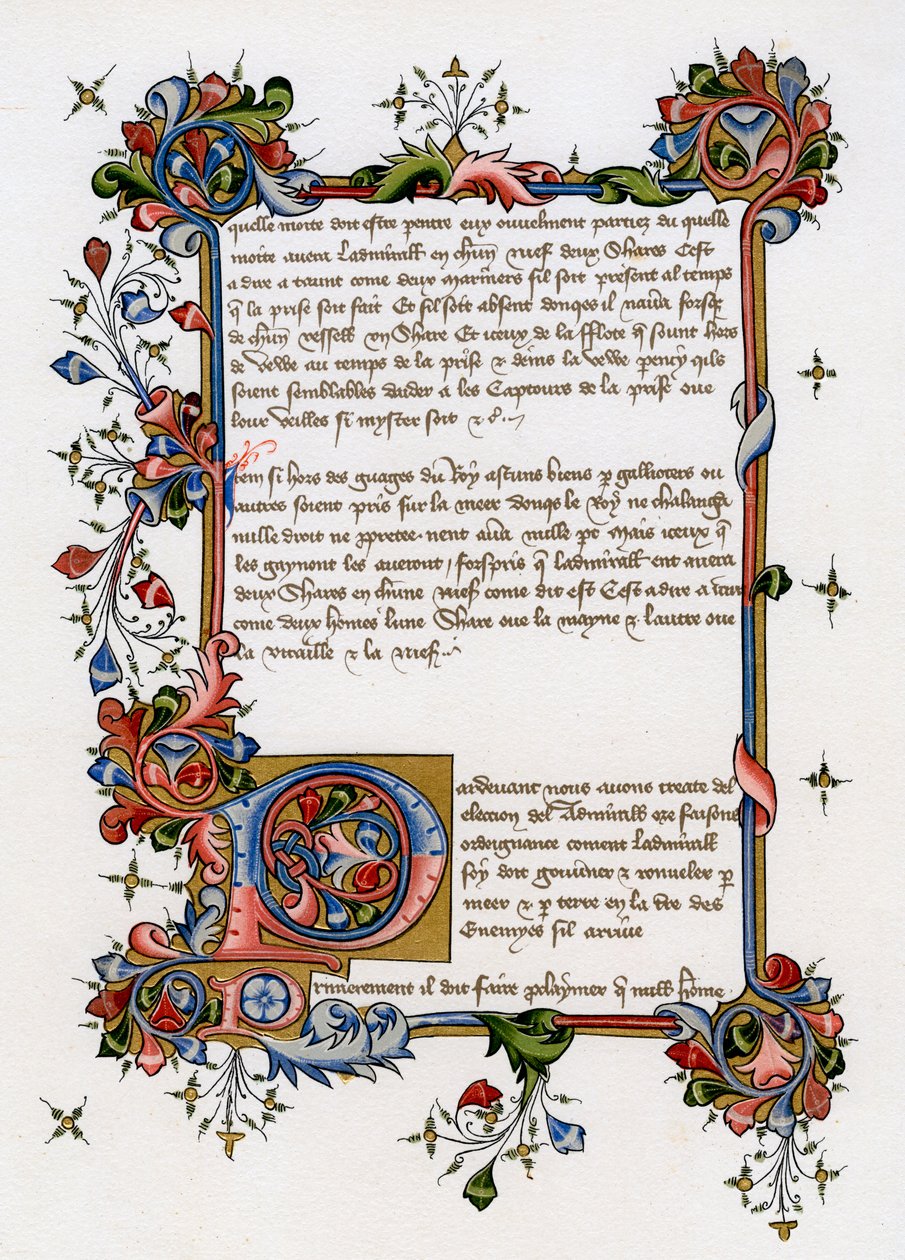 quelle moite doit estre pentre eux ouvelment partiez du quelle
moite avera Ladmirall en chūn Nief deux Shares Cest
a dire a taunt come deux mariners sil soit present al temps
q̄ la prise soit fait Et sil soit absent donqes il nav̄a forsqȝ
de chūn vessell un Share Et iceux de la fflote q̄ sount hors
de vewe au temps de la prise & deins la vewe pency qils
soient semblables daider a les Captours de la prise ove
lour veilles si myster soit &c̄
Item si hors des guages du Roy ascuns biens p̱ gallioters ou
autres soient pris sur la meer donqs le Roy ne chalangā
nulle droit ne pretee nent av̄a nulle pt Mais iceux q̄
les gaynont les averont / forspris q̄ ladmirall ent avera
deux Shares en chūne Nief come dit est Cest a dire a tant
come deux homes lune Share ove la mayne & lautre ove
la vitaille & la Nief
Pardevant nous avons treate del
eleccion del Admirall ore faisons
ordeignance coment Ladmirall
soy doit gov̄ner & ronueler p̱
meer & p̱ terre en la t̄re des
Enemyes sil arrive
Primerement il doit faire p̱claymer q̄ null home